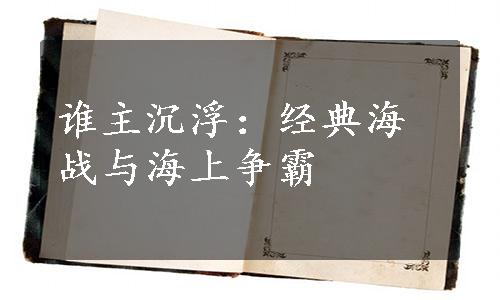 谁主沉浮：经典海
战与海上争霸